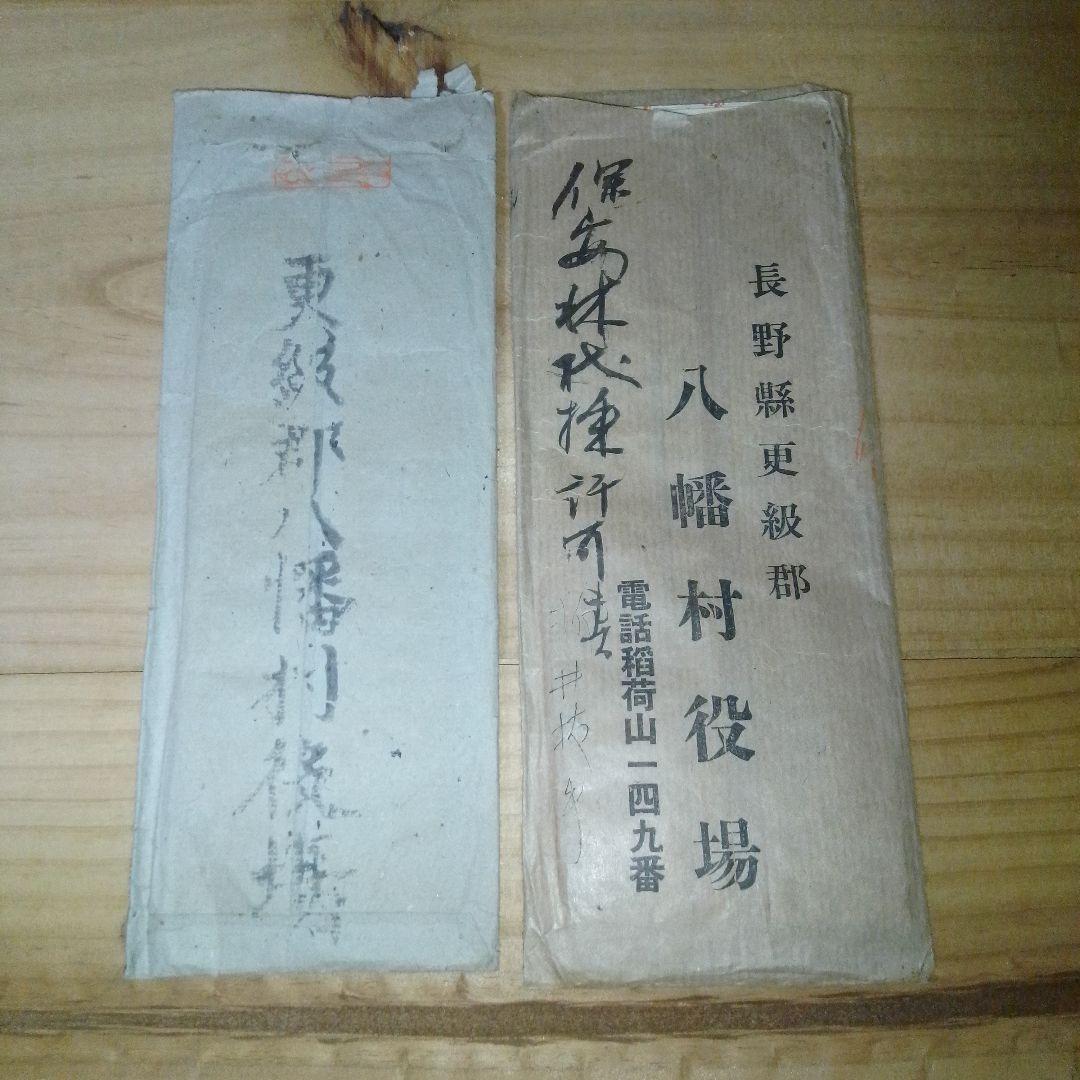 長野縣更級郡
八幡村役場
電話稲荷山一四九番
保安林伐採許可
更級郡八幡村役場